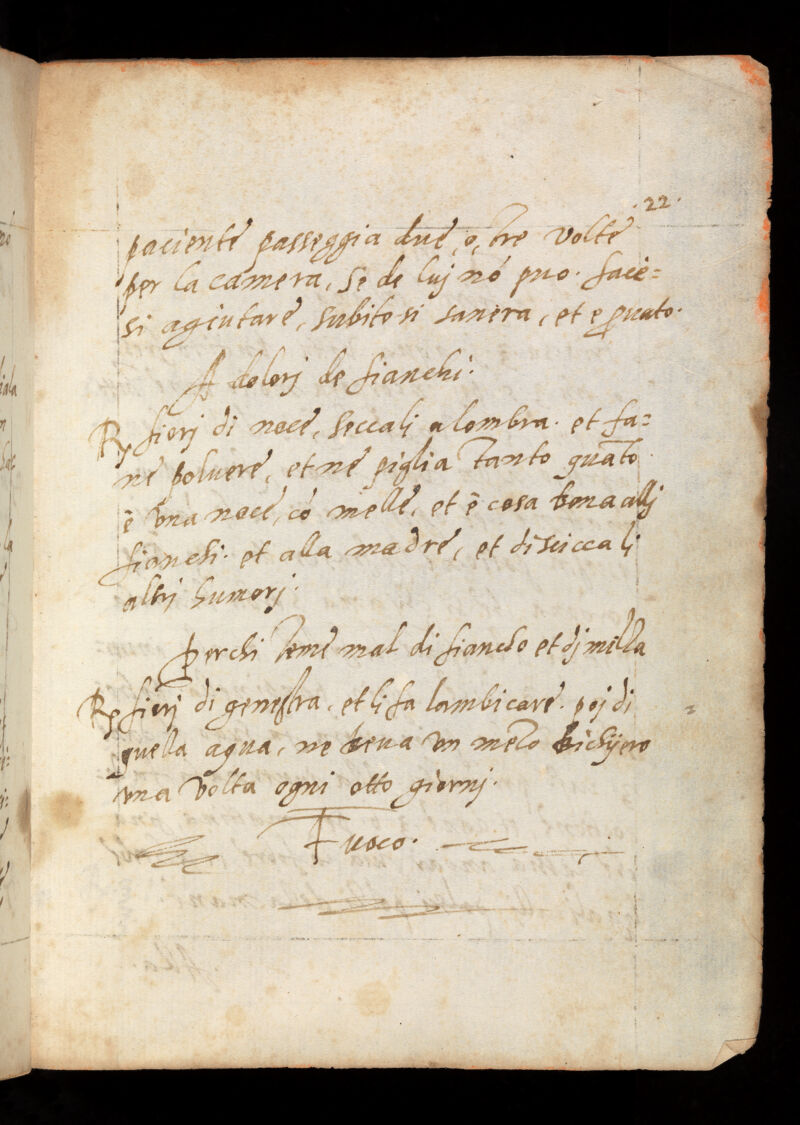 .22.
paciente passeggia due, o, tre volte
per la camera, se de luj nó puo. face=
si agiutare, subito si sanera, et e ꝓuato.
A dolorj de fianchi.
Rx fiorj di noce, seccalj a lombra. et fa=
ne poluere, et ne piglia tanto quāto
è vna noce, có melle, et è cosa bona allj
fianchi. et alla madre, et disicca li
altrj humorj.
Per chi teme mal di fiancho et dj milla
Rx fiorj di genestra, et li fa lambicare. poj di
quella aqua, ne beua vn mezo bichijero
vna volta ogni otto giornj.
Fuoco.